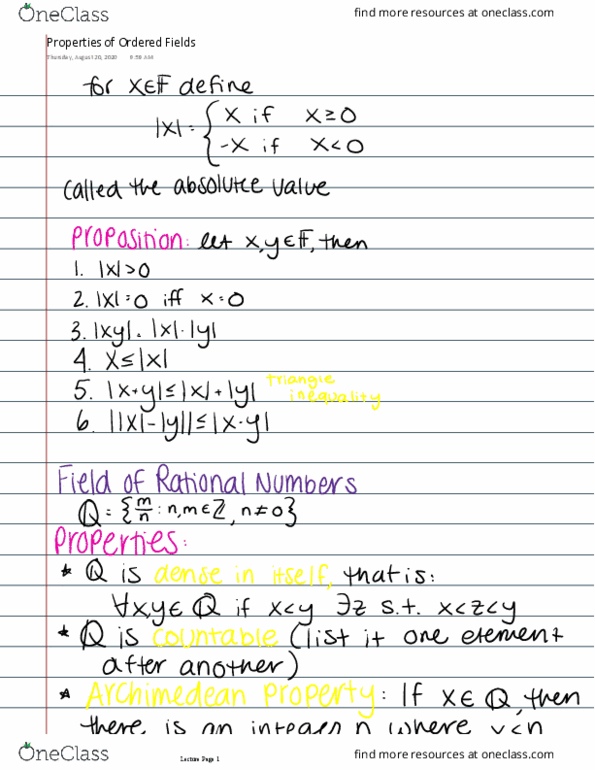 OneClass
find more resources at oneclass.com
Properties of Ordered Fields
Thursday, August 20, 2020 8:58 AM
for x∈F define
|x| = { x if x≥0
-x if x<0
called the absolute value
Proposition: let x,y∈F, then
1. |x|>0
2. |x|=0 iff x=0
3. |xy| = |x|·|y|
4. x≤|x|
5. |x+y|≤|x|+|y| triangle inequality
6. ||x|-|y||≤|x-y|
Field of Rational Numbers
Q = {m/n : n,m∈Z, n≠0}
Properties:
* Q is dense in itself, that is:
∀x,y∈ Q if x<y ∃z s.t. x<z<y
* Q is countable (list it one element
after another)
* Archimedean Property: If x∈Q, then
there is an integer n where x<n
OneClass
Lecture Page 1
find more resources at oneclass.com